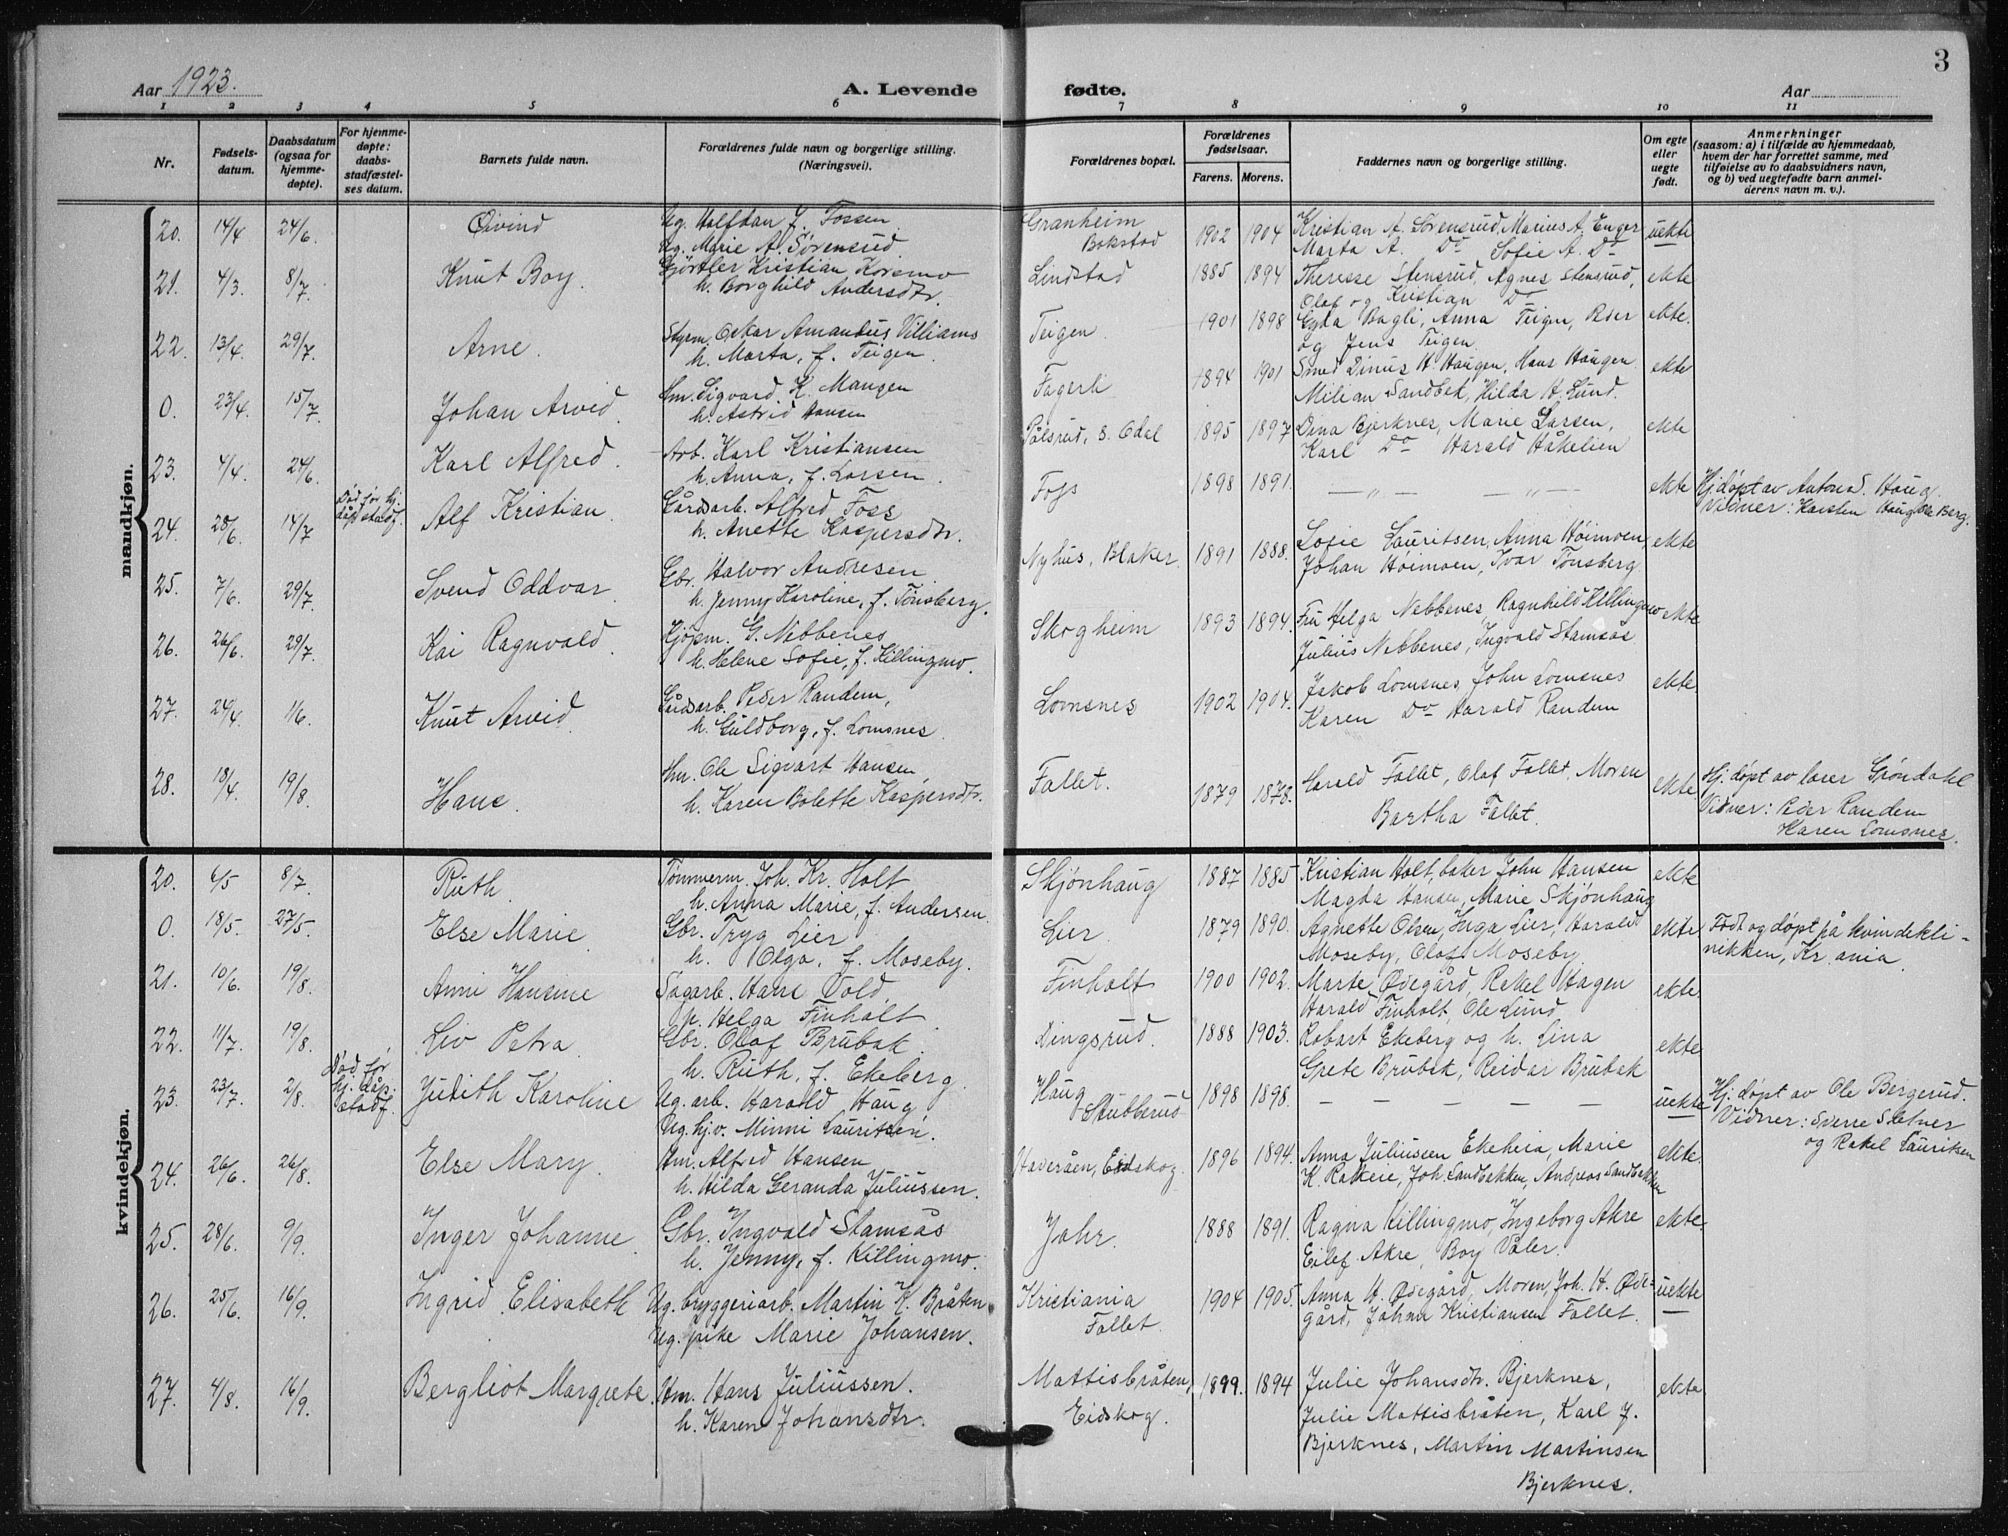 3
Aar 1923. A. Levende fødte. Aar
1 2 3 4 5 6 7 8 9 10 11
Nr. Fødsels-datum. Daabsdatum (ogsaa for hjemme-døpte). For hjemme-døpte: daabs-stadfæstel-ses datum. Barnets fulde navn. Forældrenes fulde navn og borgerlige stilling. (Næringsvei). Forældrenes bopæl. Forældrenes fødselsaar. Farens. Morens. Faddernes navn og borgerlige stilling. Om egte eller uegte født. Anmerkninger (saasom: a) i tilfælde av hjemmedaab, hvem der har forrettet samme, med tilføielse av to daabsvidners navn, og b) ved uegtefødte barn anmel-derens navn m. v.).
mandkjøn.
20. 14/4 24/6. Øivind Ug. Halfdan J. Fossen Granheim 1902 1904 Kristian A. Sørensrud, Marius A. Enger uekte
Ug. Marie A. Sørensrud Bokstad Marta A. Do Sofie A. Do
21. 4/3. 8/7. Knut Boy. Gjørtler Kristian Korsmo Lindstad 1885 1894 Therese Stensrud, Agnes Stensrud, ekte
h. Borghild Andersdtr. Olaf og Kristian Do
22. 13/4. 29/7. Arne. Styrm. Oskar Amandus Villiams Teigen 1901 1898 Gyda Bagli, Anna Teigen, Peder ekte.
h. Marta, f. Teigen. og Jens Teigen.
0. 23/4. 15/7. Johan Arvid. Hm. Sigvard K. Mangen Fagerli 1894 1901 Smed Dinus H. Haugen, Hans Haugen ekte
h. Astrid Hansen Milian Sandbek, Hilda H. Lund.
23. 4/4. 24/6. Karl Alfred. Arb. Karl Kristiansen Pålsrud, S. Odal 1895 1897 Dina Bjerknes, Marie Larsen, ekte
h. Anna, f. Larsen. Karl Do Harald Håkelien
24. 28/6. 14/7. Død før hj. dåp stadf. Alf Kristian. Gårdsarb. Alfred Foss Foss 1898 1891. — „ — — „ — ekte Hj. døpt av Anton d. Haug.
h. Anette Kaspersdtr. Vidner: Karsten Haug Berg.
25. 7/6. 29/7. Svend Oddvar. Gbr. Halvor Andresen Nyhus, Blaker 1891 1888. Sofie Lauritsen, Anna Høimoen, ekte
h. Jenny Karoline, f. Tønsberg. Johan Høimoen, Ivar Tønsberg.
26. 26/6. 29/7. Kai Ragnvald. Kjøpm. G. Nebbenes Skogheim 1893 1894. Fru Helga Nebbenes, Ragnhild Killingmo ekte
h. Helene Sofie, f. Killingmo. Julius Nebbenes, Ingvald Stamsås
27. 24/4. 1/6. Knut Arvid. Gårdsarb. Peder Randem, Lomsnes 1902 1904. Jakob Lomsnes, John Lomsnes ekte.
h. Guldborg, f. Lomsnes. Karen Do Harald Randem
28. 18/4. 19/8. Hans. Hm. Ole Sigvart Hansen, Fallet. 1879 1878. Harald Fallet, Olaf Fallet, Moren ekte Hj. døpt av lærer Grøndahl
h. Karen Bolette Kaspersdtr. Bertha Fallet. Vidner: Peder Randem
Karen Lomsnes.
kvindekjøn.
20. 6/5 8/7. Ruth. Tømmerm. Joh. Kr. Holt Skjønhaug 1887 1885 Kristian Holt, baker John Hansen ekte
h. Anna Marie, f. Andersen. Magda Hansen, Marie Skjønhaug
0. 18/5. 27/5. Else Marie. Gbr. Tryg Lier Lier 1879 1890. Agnette Olsen, Inga Lier, Harald ekte Født og døpt på kvindekli-
h. Olga, f. Moseby. Moseby, Olaf Moseby. nikken, Kr.ania.
21. 10/6. 19/8. Anni Hansine Sagarb. Hans Vold Finholt 1900 1902. Marte Ødegård, Rakel Hagen ekte.
h. Helga Finholt. Harald Finholt, Ole Lund
22. 11/7. 19/8. Liv Petra Gbr. Olaf Brubak. Ringsrud. 1888 1903. Robart Ekeberg og h. Lina ekte
h. Ruth, f. Ekeberg. Grete Brubak, Reidar Brubak
23. 23/7. 2/8. Død før hj. dåp. stadf. Judith Karoline Ug. arb. Harald Haug Haug 1898 1898. — — — — — uekte Hj. døpt av Ole Bergerud.
Ug. hj.v. Minni Lauritsen. Stubberud Vidner: Sverre Sletner
og Rakel Lauritsen
24. 26/6. 26/8. Else Mary. Hm. Alfred Hansen Haveråen, Eidskog. 1896 1894. Anna Juliussen Ekeheia, Marie ekte.
h. Hilda Geranda Juliussen. K. Rakeie, Joh. Sandbakken, Andreas Sandbakken
25. 28/6. 9/9. Inger Johanne. Gbr. Ingvald Stamsås Jahr. 1888 1891. Ragna Killingmo, Ingeborg Akre ekte.
h. Jenny, f. Killingmo. Eilef Akre, Boy Våler.
26. 25/6. 16/9. Ingrid Elisabeth Ug. bryggeriarb. Martin K. Bråten. Kristiania 1904 1905. Anna H. Ødegård, Moren, Joh. H. Øde- uekte
Ug. pike Marie Johansen. Fallet. gård, Johan Kristiansen Fallet.
27. 4/8. 16/9. Bergliot Margrete. Hm. Hans Juliussen. Mattisbråten, 1899. 1894 Julie Johansdtr. Bjerknes, ekte
h. Karen Johansdtr. Eidskog. Julie Mattisbråten, Karl J.
Bjerknes, Martin Martinsen
Bjerknes.